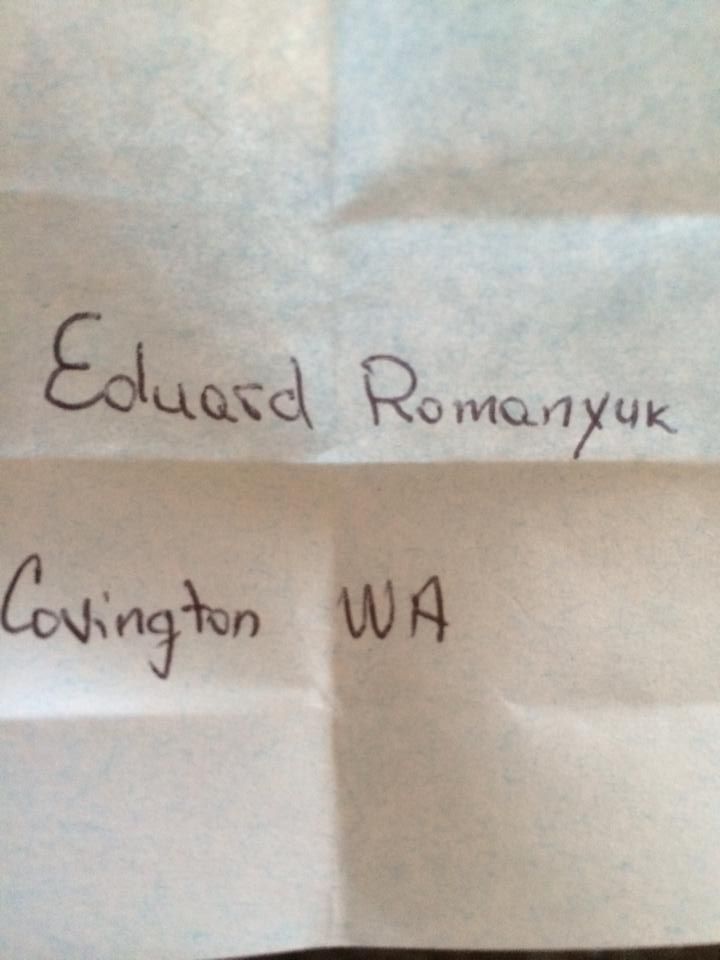 Eduard Romanyuk
Covington WA